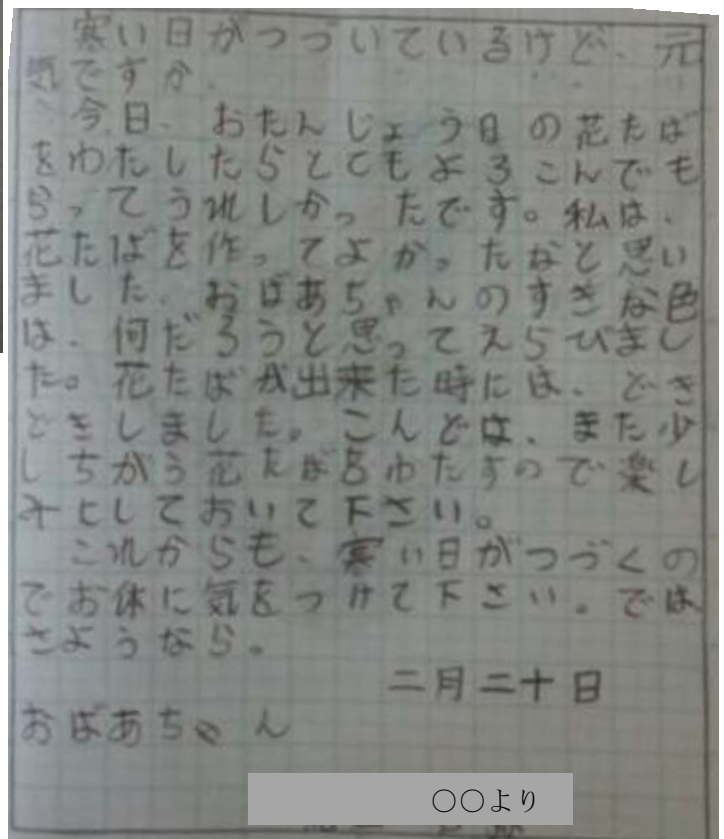 寒い日がつづいているけど、元
気ですか。
今日、おたんじょう日の花たば
をわたしたらとてもよろこんでも
らってうれしかったです。私は、
花たばを作ってよかったなと思い
ました。おばあちゃんのすきな色
は、何だろうと思ってえらびまし
た。花たばが出来た時には、どき
どきしました。こんどは、また少
しちがう花たばをわたすので楽し
みにしておいて下さい。
これからも、寒い日がつづくの
でお体に気をつけて下さい。では
さようなら。
二月二十日
おばあちゃん
○○より